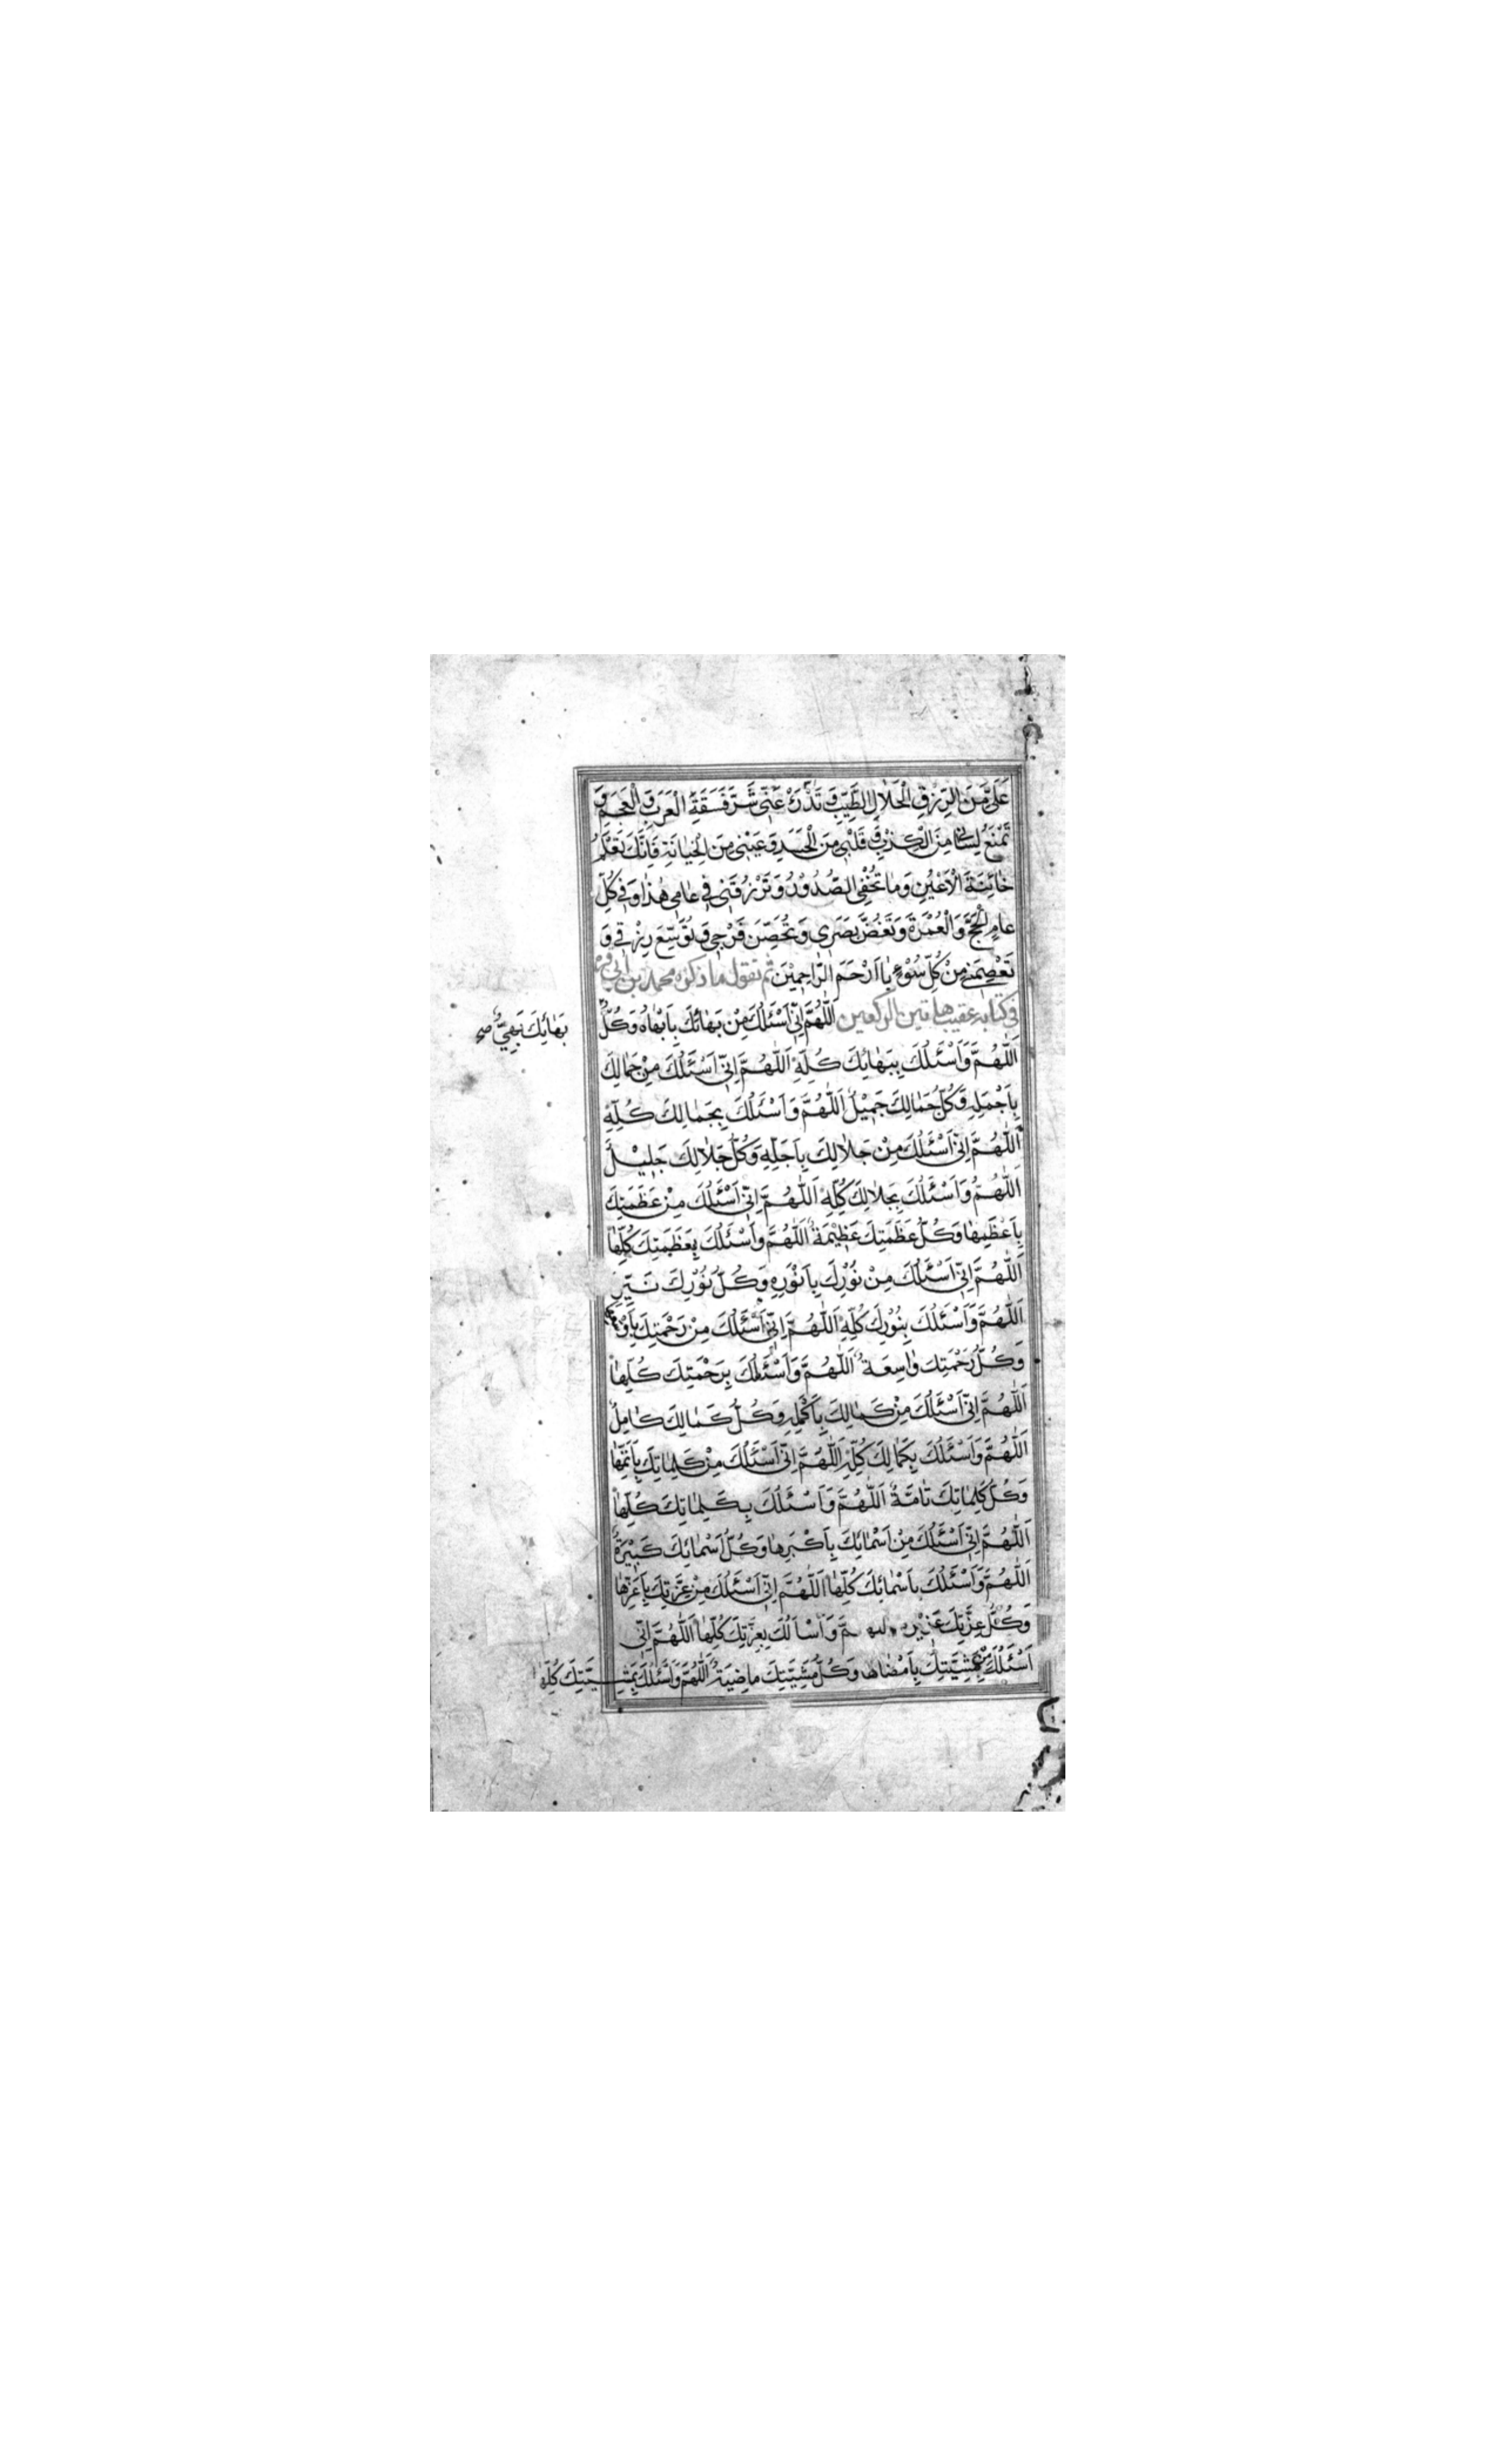 عَلَیَّ مِنَ الرِّزْقِ الْحَلَالِ الطَّيِّبِ وَ تَدْرَءَ عَنّی شَرَّ فَسَقَةِ الْعَرَبِ وَ الْعَجَمِ وَ
تَمْنَعُ لِسَانی مِنَ الْکِذْبِ وَ قَلْبی مِنَ الْحَسَدِ وَ عَیْنی مِنَ الْخِیَانَةِ فَاِنَّکَ تَعْلَمُ
خَائِنَةَ الْاَعْیُنِ وَمَا تُخْفِی الصُّدُوْرُ وَتَرْزُقَنی فی عَامی هٰذَا وَ فی کُلِّ
عَامٍ الْحَجَّ وَالْعُمْرَةَ وَتَغُضَّ بَصَرَی وَ تُحَصِّنَ فَرْجی وَ تُوَسِّعَ رِزْقی وَ
تَعْصِمَنی مِنْ کُلِّ سُوْءٍ یَا اَرْحَمَ الرَّاحِمیْنَ ثم تقول ما ذکره محمد بن ابی قره
فی کتابه عقیب هاتین الرکعتین اَللّٰهُمَّ اِنّی اَسْئَلُكَ مِنْ بَهَائِكَ بِاَبْهَاهُ وَکُلُّ
بَهَائِكَ بَهِیٌّ صح
اَللّٰهُمَّ وَاَسْئَلُكَ بِبَهَائِكَ کُلِّهِ اَللّٰهُمَّ اِنّی اَسْئَلُكَ مِنْ جَمَالِكَ
بِاَجْمَلِهِ وَکُلُّ جَمَالِكَ جَمِیْلٌ اَللّٰهُمَّ وَاَسْئَلُكَ بِجَمَالِكَ کُلِّهِ
اَللّٰهُمَّ اِنّی اَسْئَلُكَ مِنْ جَلَالِكَ بِاَجَلِّهِ وَکُلُّ جَلَالِكَ جَلِیْلٌ
اَللّٰهُمَّ وَاَسْئَلُكَ بِجَلَالِكَ کُلِّهِ اَللّٰهُمَّ اِنّی اَسْئَلُكَ مِنْ عَظَمَتِكَ
بِاَعْظَمِهَا وَکُلُّ عَظَمَتِكَ عَظِیْمَةٌ اَللّٰهُمَّ وَاَسْئَلُكَ بِعَظَمَتِكَ کُلِّهَا
اَللّٰهُمَّ اِنّی اَسْئَلُكَ مِنْ نُوْرِكَ بِاَنْوَرِهِ وَکُلُّ نُوْرِكَ نَیِّرٌ
اَللّٰهُمَّ وَاَسْئَلُكَ بِنُوْرِكَ کُلِّهِ اَللّٰهُمَّ اِنّی اَسْئَلُكَ مِنْ رَحْمَتِكَ
وَکُلُّ رَحْمَتِكَ وَاسِعَةٌ اَللّٰهُمَّ وَاَسْئَلُكَ بِرَحْمَتِكَ کُلِّهَا
اَللّٰهُمَّ اِنّی اَسْئَلُكَ مِنْ کَمَالِكَ بِاَکْمَلِهِ وَکُلُّ کَمَالِكَ کَامِلٌ
اَللّٰهُمَّ وَاَسْئَلُكَ بِکَمَالِكَ کُلِّهِ اَللّٰهُمَّ اِنّی اَسْئَلُكَ مِنْ کَلِمَاتِكَ بِاَتَمِّهَا
وَکُلُّ کَلِمَاتِكَ تَامَّةٌ اَللّٰهُمَّ وَاَسْئَلُكَ بِکَلِمَاتِكَ کُلِّهَا
اَللّٰهُمَّ اِنّی اَسْئَلُكَ مِنْ اَسْمَائِكَ بِاَکْبَرِهَا وَکُلُّ اَسْمَائِكَ کَبِیْرَةٌ
اَللّٰهُمَّ وَاَسْئَلُكَ بِاَسْمَائِكَ کُلِّهَا اَللّٰهُمَّ اِنّی اَسْئَلُكَ مِنْ عِزَّتِكَ بِاَعَزِّهَا
وَکُلُّ عِزَّتِكَ وَاَسْاَلُكَ بِعِزَّتِكَ کُلِّهَا اَللّٰهُمَّ اِنّی
اَسْئَلُكَ مِنْ مَشِیَّتِكَ بِاَمْضَاهَا وَکُلُّ مَشِیَّتِكَ مَاضِیَةٌ اَللّٰهُمَّ وَاَسْئَلُكَ بِمَشِیَّتِكَ کُلِّهَا